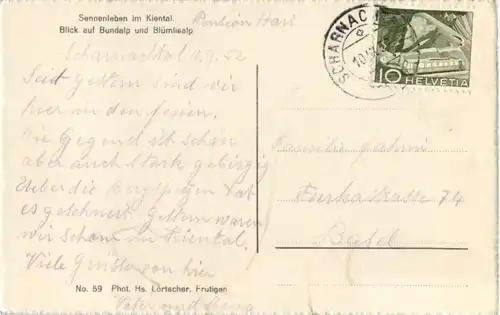 Sennenleben im Kiental.
Blick auf Bundalp und Blümlisalp
Pension Hari
Scharnachtal 1.9.52
Seit gestern sind wir
hier in den Ferien.
Die Gegend ist schön
aber auch stark gebirgig
Ueber die Bergspizen hat
es geschneit. Gestern waren
wir schon in Kiental.
Viele Grüsse von hier
Vater und
No. 59 Phot. Hs. Lörtscher, Frutigen
SCHARNACHTAL
10 HELVETIA
Familie
Furkastrasse 74
Basel